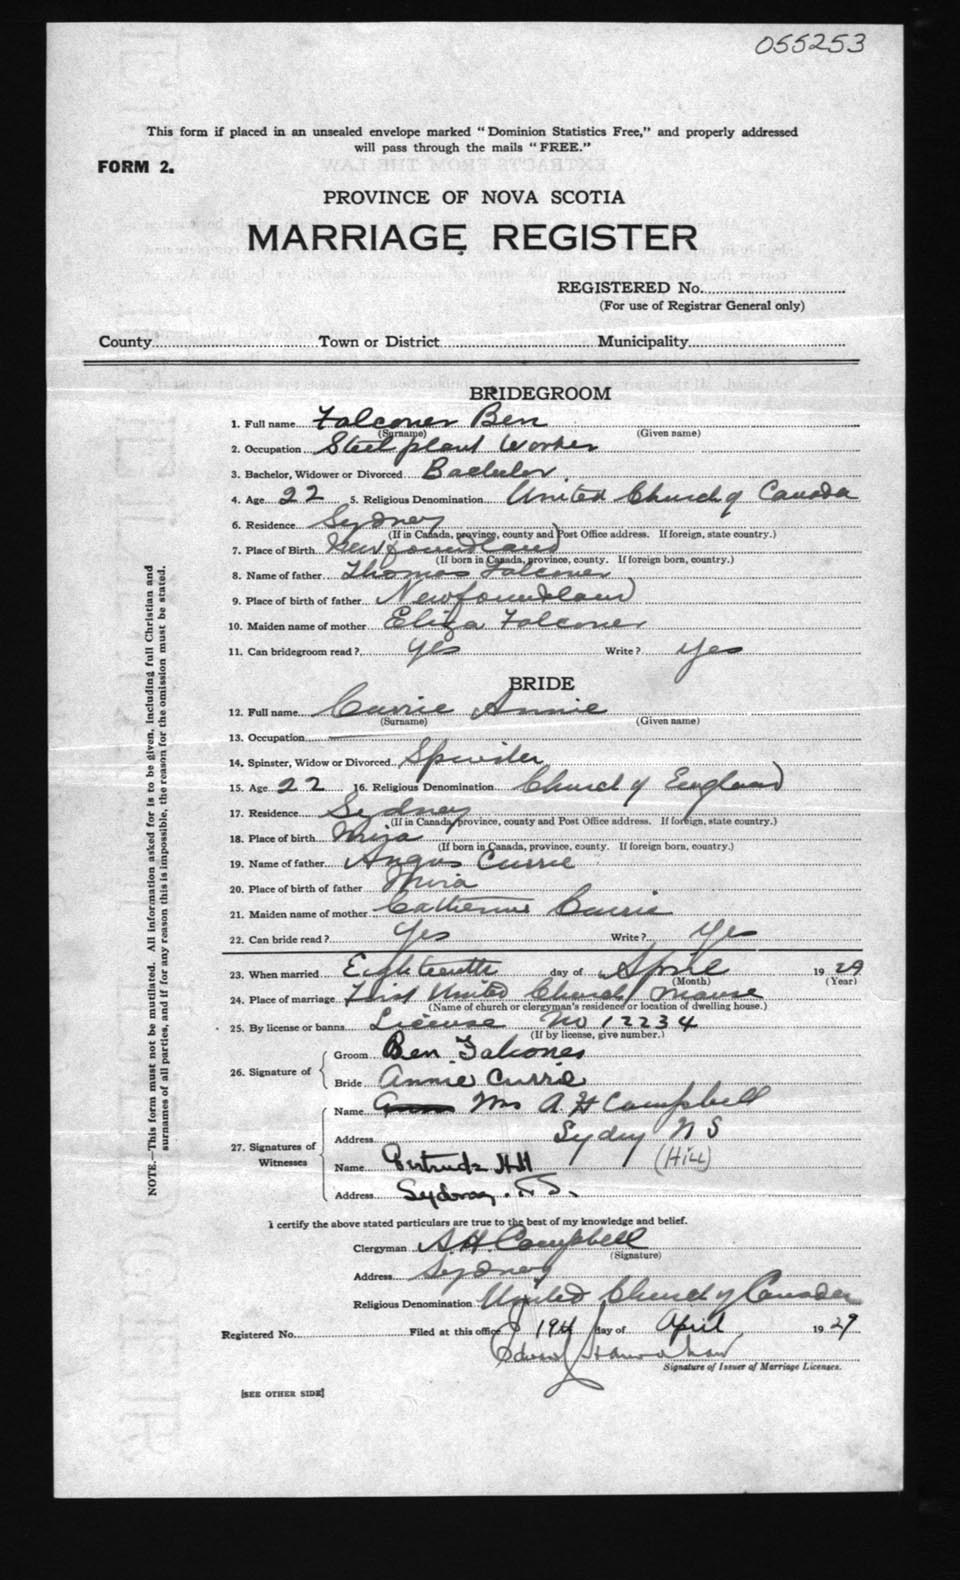 055253
This form if placed in an unsealed envelope marked "Dominion Statistics Free," and properly addressed
will pass through the mails "FREE."
FORM 2.
PROVINCE OF NOVA SCOTIA
MARRIAGE REGISTER
REGISTERED No.
(For use of Registrar General only)
County Town or District Municipality
BRIDEGROOM
1. Full name Falconer Ben
(Surname) (Given name)
2. Occupation Steel plant Worker
3. Bachelor, Widower or Divorced Bachelor
4. Age 22 5. Religious Denomination United Church of Canada
6. Residence Sydney
(If in Canada, province, county and Post Office address. If foreign, state country.)
7. Place of Birth Newfoundland
(If born in Canada, province, county. If foreign born, country.)
8. Name of father Thomas Falconer
9. Place of birth of father Newfoundland
10. Maiden name of mother Eliza Falconer
11. Can bridegroom read? yes Write? yes
BRIDE
12. Full name Currie Annie
(Surname) (Given name)
13. Occupation
14. Spinster, Widow or Divorced Spinster
15. Age 22 16. Religious Denomination Church of England
17. Residence Sydney
(If in Canada, province, county and Post Office address. If foreign, state country.)
18. Place of birth Mira
(If born in Canada, province, county. If foreign born, country.)
19. Name of father Angus Currie
20. Place of birth of father Mira
21. Maiden name of mother Catherine Currie
22. Can bride read? Yes Write? Yes
23. When married Eighteenth day of April 1929
(Month) (Year)
24. Place of marriage First United Church Manse
(Name of church or clergyman's residence or location of dwelling house.)
25. By license or banns License No 12234
(If by license, give number.)
26. Signature of
Groom Ben Falconer
Bride Annie Currie
27. Signatures of Witnesses
Name Mrs A. H Campbell
Address Sydney N S
Name Gertrude Hill (Hill)
Address Sydney. N.S.
I certify the above stated particulars are true to the best of my knowledge and belief.
Clergyman A. H. Campbell
(Signature)
Address Sydney
Religious Denomination United Church of Canada
Registered No. Filed at this office 19th day of April 1929
Signature of Issuer of Marriage Licenses.
[SEE OTHER SIDE]
NOTE.—This form must not be mutilated. All information asked for is to be given, including full Christian and
surnames of all parties, and if for any reason this is impossible, the reason for the omission must be stated.